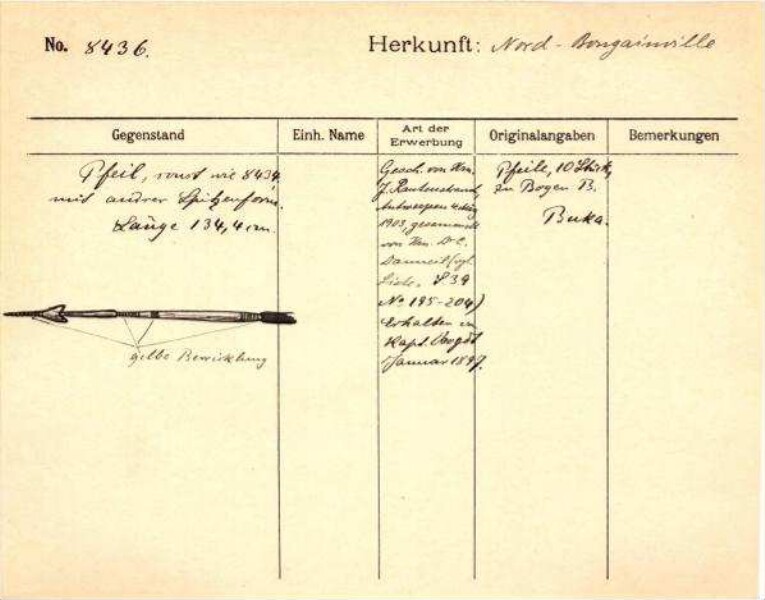 No. 8436.
Herkunft: Nord-Bougainville
Gegenstand
Einh. Name
Art der
Erwerbung
Originalangaben
Bemerkungen
Pfeil, sonst wie 8434
mit andrer Spitzenform.
Länge 134,4 cm.
gelbe Bewicklung
Gesch. von Hrn.
J. Rautenstrauch,
Antwerpen
1903, gesammelt
von Hrn. Dr. C.
Danneil (vgl.
Liste. S 39
No 195-204)
Erhalten
Kapt.
Januar 1897.
Pfeile, 10 Stück,
zu Bogen B.
Buka.